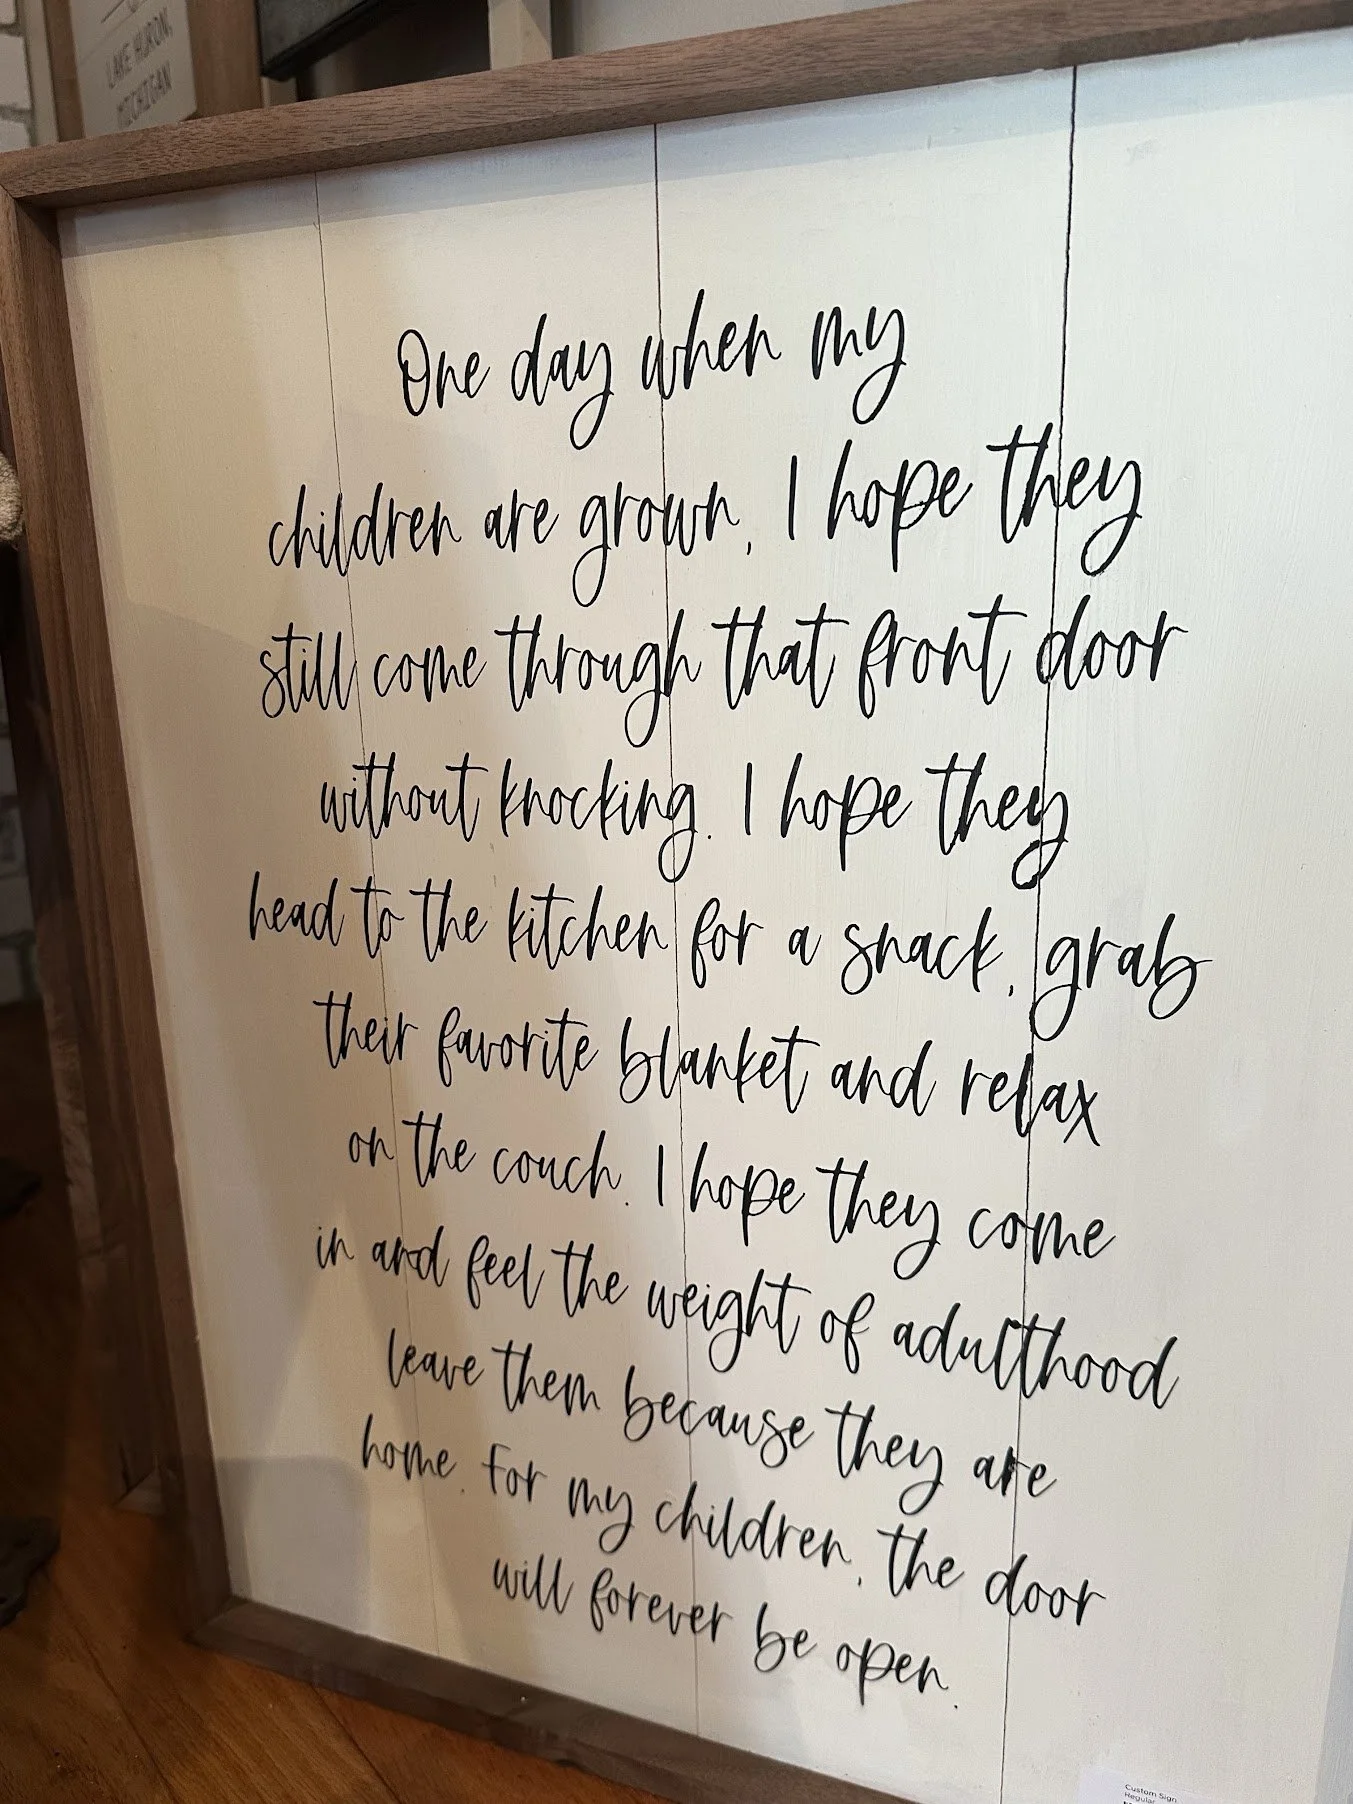 LAKE HURON,
MICHIGAN
One day when my
children are grown, I hope they
still come through that front door
without knocking. I hope they
head to the kitchen for a snack, grab
their favorite blanket and relax
on the couch. I hope they come
in and feel the weight of adulthood
leave them because they are
home. For my children, the door
will forever be open.
Custom Sign
Regular